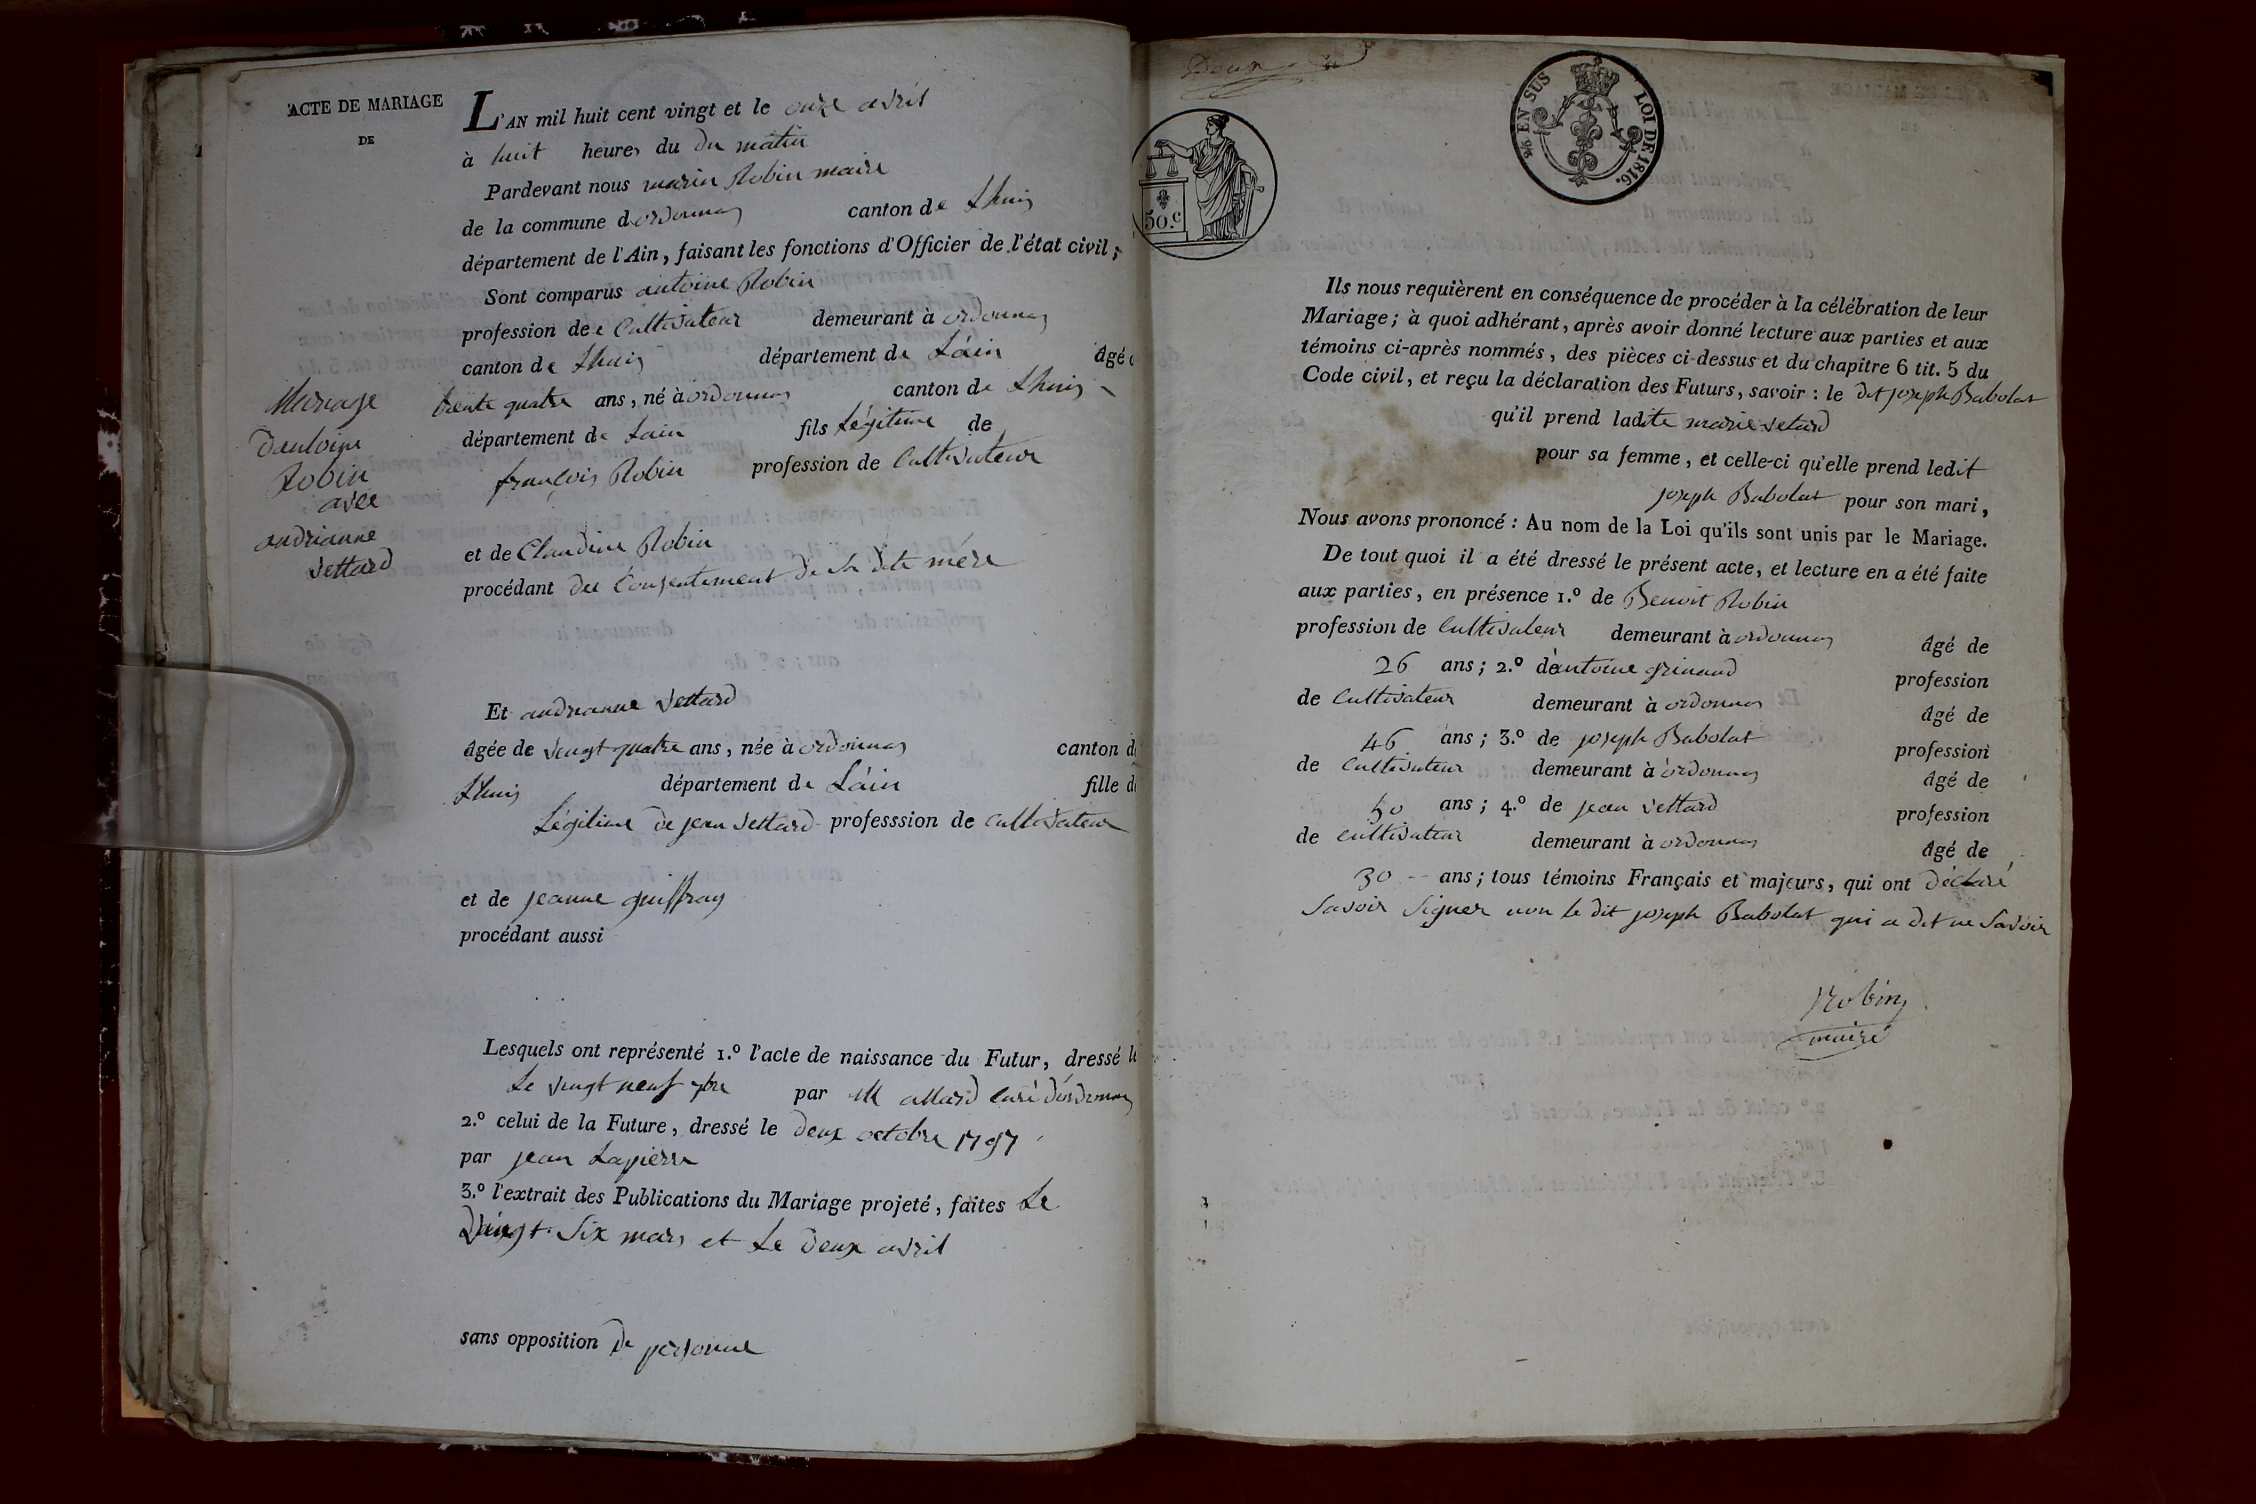 ACTE DE MARIAGE
DE
Mariage
d'antoine
Robin
avec
andrianne
Vettard
L'AN mil huit cent vingt et le onze avril
à huit heures du du matin
Pardevant nous marin Robin maire
de la commune d ordonnas canton de Lhuis
département de l'Ain, faisant les fonctions d'Officier de l'état civil;
Sont comparus antoine Robin
profession de Cultivateur demeurant à ordonnas
canton de Lhuis département de L'ain âgé
trente quatre ans, né à ordonnas canton de Lhuis
département de Lain fils Légitime de
françois Robin profession de Cultivateur
et de Claudine Robin
procédant du Consentement de Sa dite mére
Et andrianne Vettard
âgée de vingt quatre ans, née à ordonnas canton de
Lhuis département de L'ain fille de
Légitime de jean Vettard professsion de cultivateur
et de jeanne guiffray
procédant aussi
Lesquels ont représenté 1.º l'acte de naissance du Futur, dressé le
Le vingt neuf 7bre par M allard Curé d'ordonnas
2.º celui de la Future, dressé le deux octobre 1797
par jean Lapierre
3.º l'extrait des Publications du Mariage projeté, faites Le
vingt Six mars et Le deux avril
sans opposition De personne
Deux
50.c
26 EN SUS LOI DE 1816.
Ils nous requièrent en conséquence de procéder à la célébration de leur
Mariage; à quoi adhérant, après avoir donné lecture aux parties et aux
témoins ci-après nommés, des pièces ci-dessus et du chapitre 6 tit. 5 du
Code civil, et reçu la déclaration des Futurs, savoir: le dit joseph Babolat
qu'il prend ladite marie vetard
pour sa femme, et celle-ci qu'elle prend ledit
joseph Babolat pour son mari,
Nous avons prononcé: Au nom de la Loi qu'ils sont unis par le Mariage.
De tout quoi il a été dressé le présent acte, et lecture en a été faite
aux parties, en présence 1.º de Benoit Robin
profession de Cultivateur demeurant à ordonnas âgé de
26 ans; 2.º d'antoine grinand profession
de Cultivateur demeurant à ordonnas âgé de
46 ans; 3.º de joseph Babolat profession
de Cultivateur demeurant à ordonnas âgé de
50 ans; 4.º de jean vettard profession
de cultivateur demeurant à ordonnas âgé de
30 ans; tous témoins Français et majeurs, qui ont déclaré
Savoir Signer non le dit joseph Babolat qui a dit ne Savoir
Robin
maire